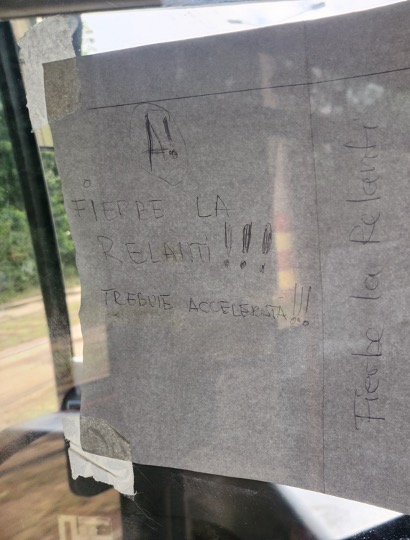 A!
FIERBE LA
RELANTI!!!
TREBUIE ACCELERATA!!!
Fierbe la Relanti